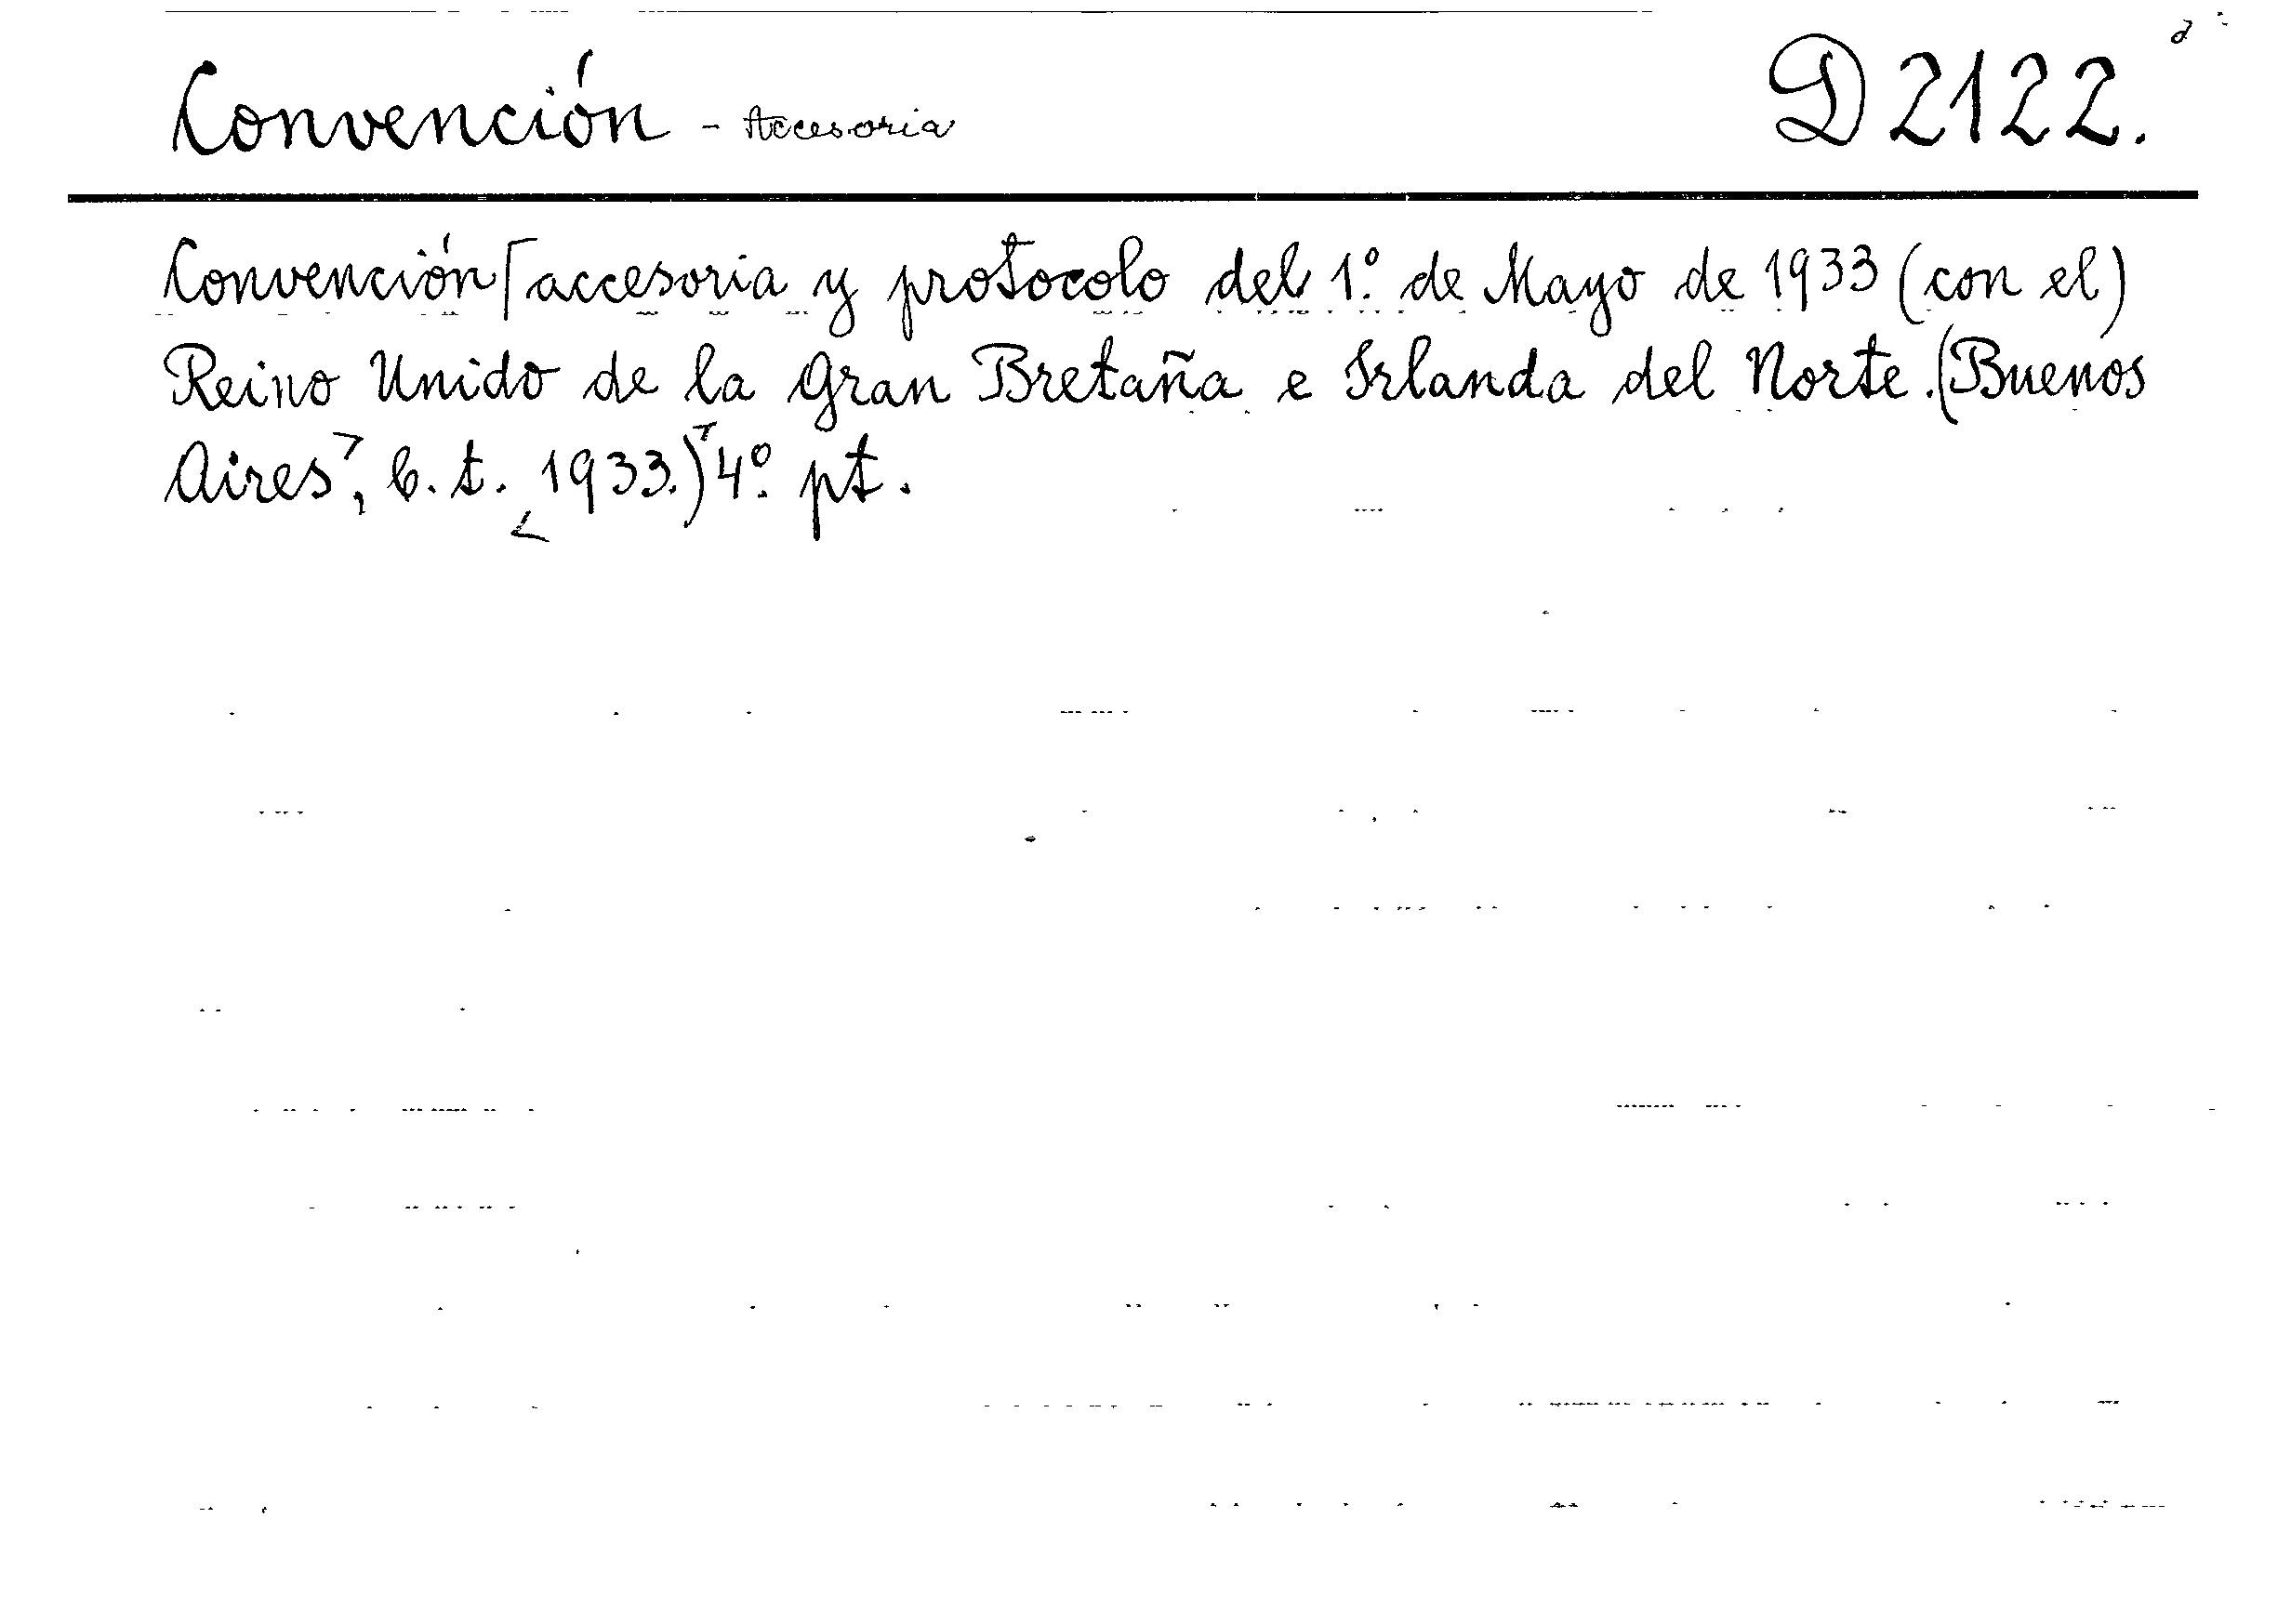 Convención - Accesoria D 2122.
Convención [accesoria y protocolo del 1º de Mayo de 1933 (con el)
Reino Unido de la Gran Bretaña e Irlanda del Norte. (Buenos
Aires, b. t. 1933.) 4º pt.